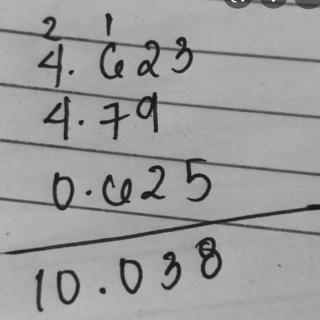 2 1
4.623
4.79
0.625
10.038